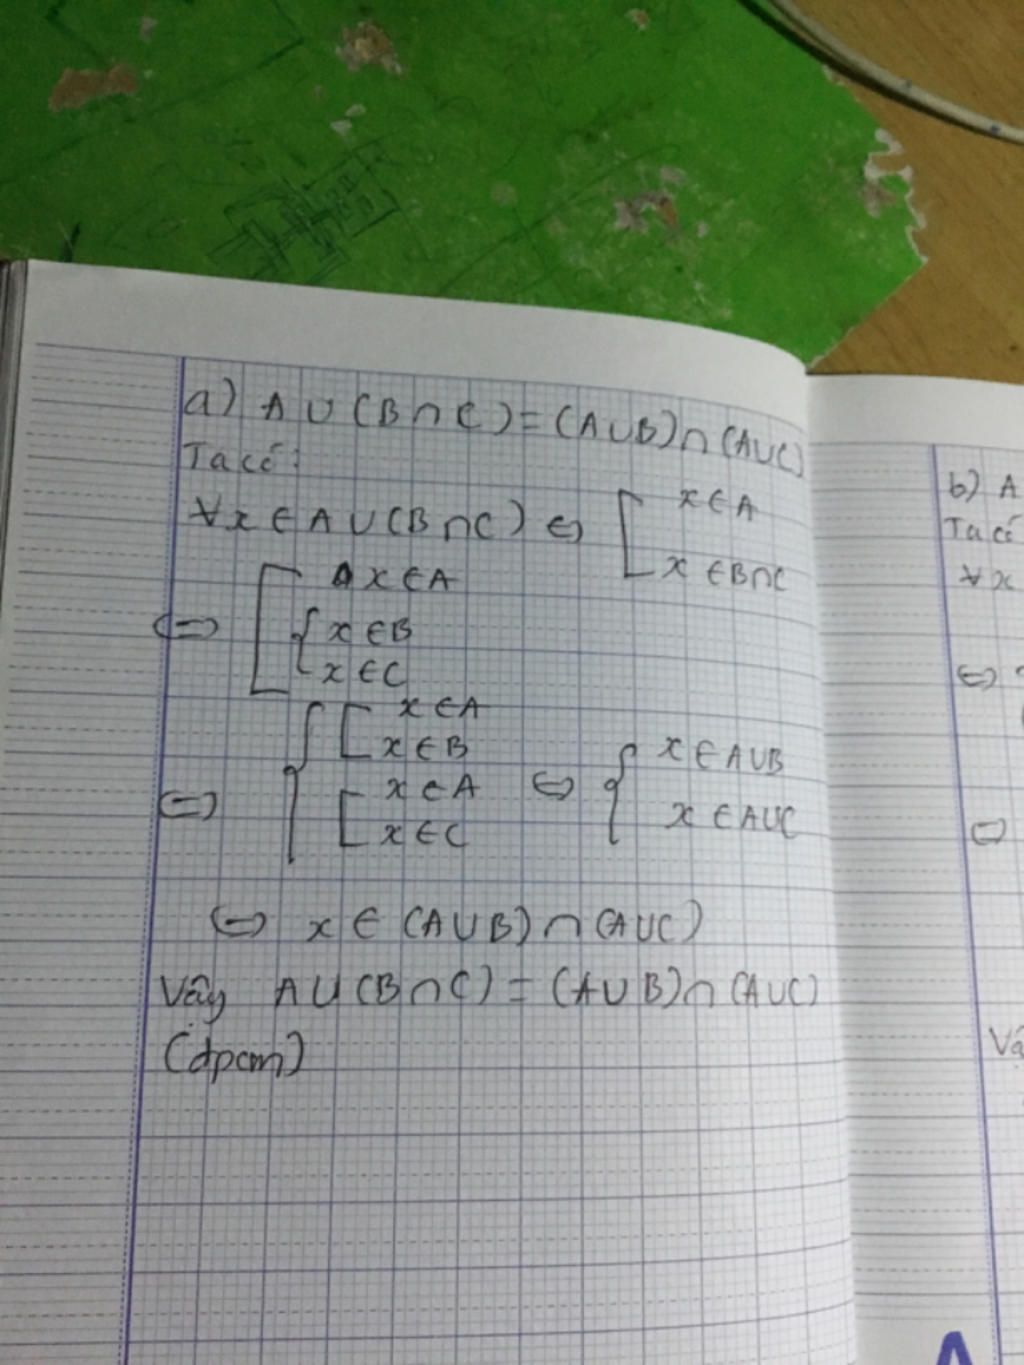 a) A ∪ (B ∩ C) = (A ∪ B) ∩ (A ∪ C)
Ta có:
∀x ∈ A ∪ (B ∩ C) ⇔ [ x ∈ A
x ∈ B ∩ C
⇔ [ x ∈ A
{ x ∈ B
x ∈ C
⇔ { [ x ∈ A
x ∈ B
[ x ∈ A
x ∈ C
⇔ { x ∈ A ∪ B
x ∈ A ∪ C
⇔ x ∈ (A ∪ B) ∩ (A ∪ C)
Vậy A ∪ (B ∩ C) = (A ∪ B) ∩ (A ∪ C)
(đpcm)
b) A
Ta có
∀x
⇔
⇔